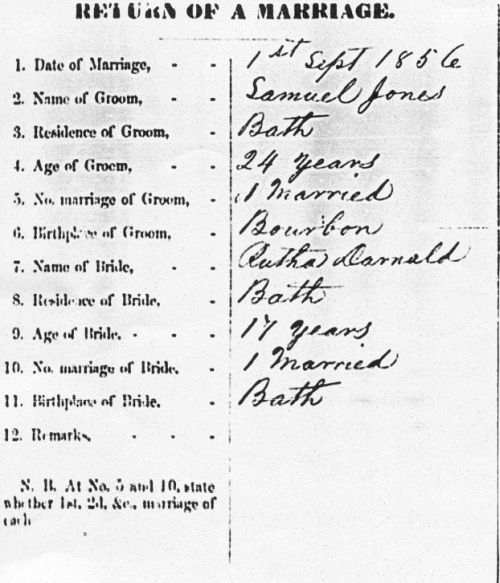 RETURN OF A MARRIAGE.
1. Date of Marriage, - - 1st Sept 1856
2. Name of Groom, - - Samuel Jones
3. Residence of Groom, - Bath
4. Age of Groom, - - 24 years
5. No. marriage of Groom, - 1 Married
6. Birthplace of Groom, - Bourbon
7. Name of Bride, - - Rutha Darnald
8. Residence of Bride, - Bath
9. Age of Bride, - - - 17 years
10. No. marriage of Bride, - 1 Married
11. Birthplace of Bride, - Bath
12. Remarks, - - -
N. B. At No. 5 and 10, state
whether 1st, 2d, &c., marriage of
each